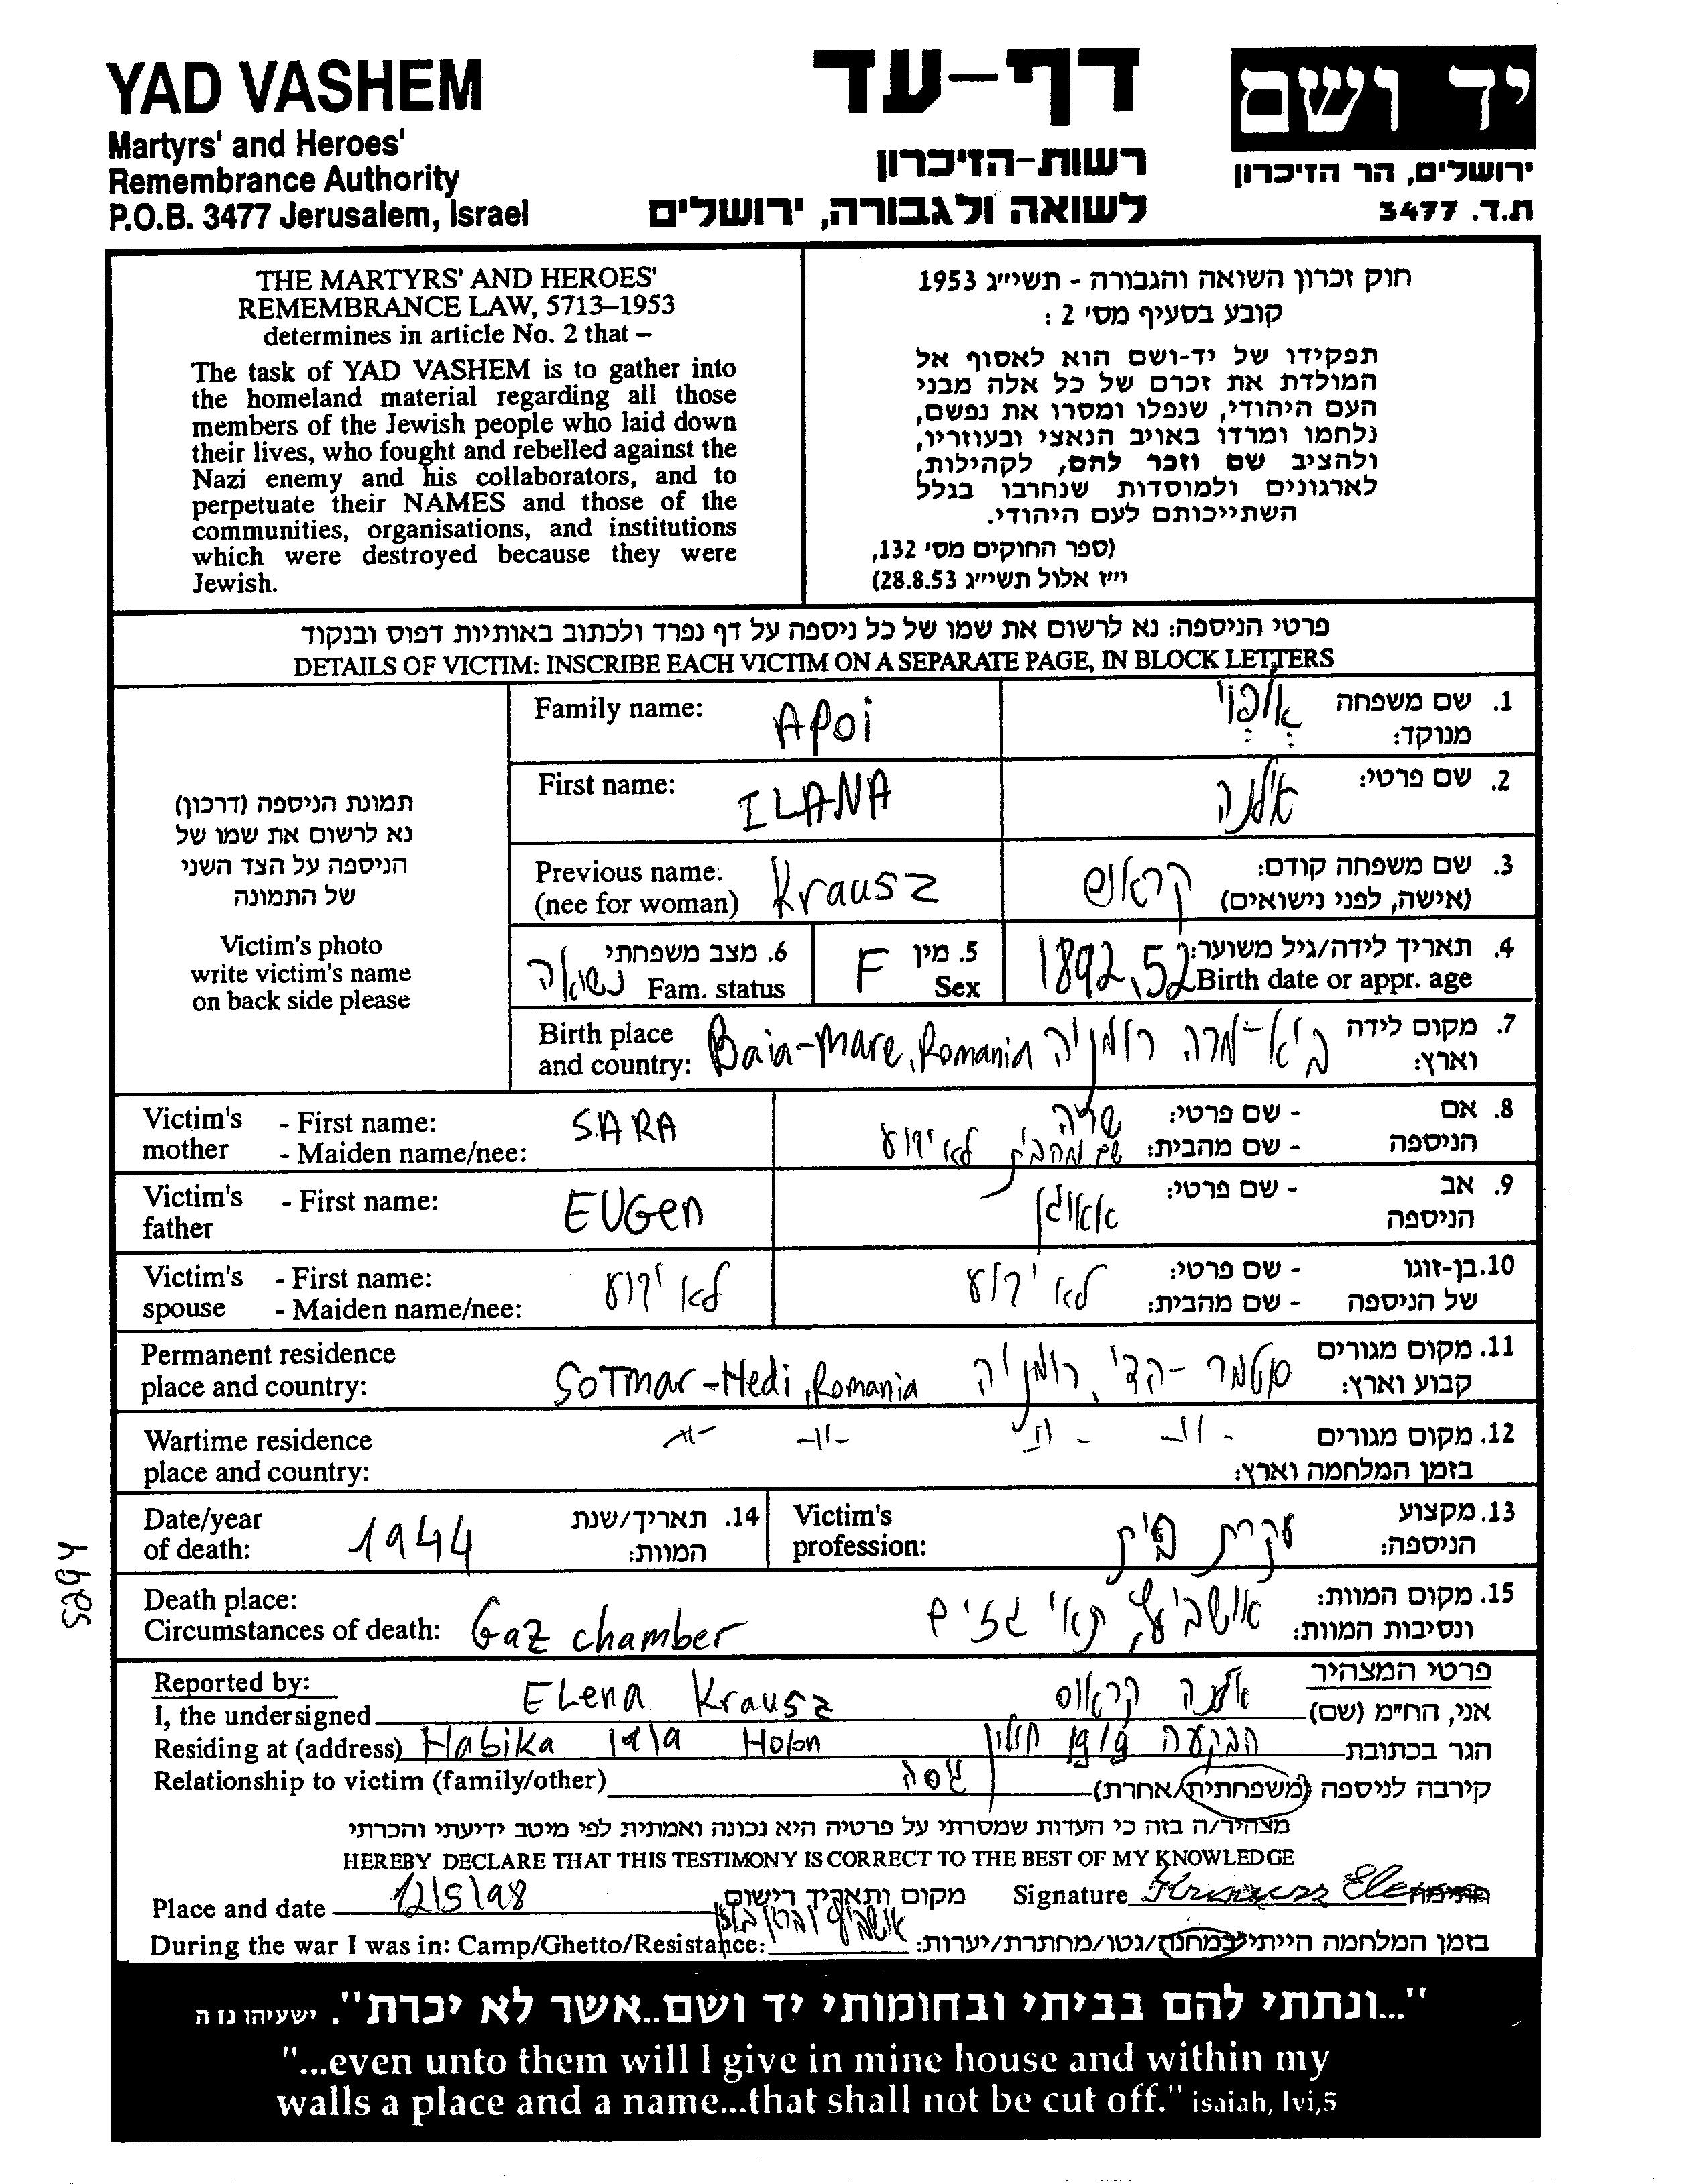 YAD VASHEM
Martyrs' and Heroes'
Remembrance Authority
P.O.B. 3477 Jerusalem, Israel
דף-עד
רשות-הזיכרון
לשואה ולגבורה, ירושלים
יד ושם
ירושלים, הר הזיכרון
ת.ד. 3477
THE MARTYRS' AND HEROES'
REMEMBRANCE LAW, 5713–1953
determines in article No. 2 that –
The task of YAD VASHEM is to gather into
the homeland material regarding all those
members of the Jewish people who laid down
their lives, who fought and rebelled against the
Nazi enemy and his collaborators, and to
perpetuate their NAMES and those of the
communities, organisations, and institutions
which were destroyed because they were
Jewish.
חוק זכרון השואה והגבורה - תשי״ג 1953
קובע בסעיף מס' 2 :
תפקידו של יד-ושם הוא לאסוף אל
המולדת את זכרם של כל אלה מבני
העם היהודי, שנפלו ומסרו את נפשם,
נלחמו ומרדו באויב הנאצי ובעוזריו,
ולהציב שם וזכר להם, לקהילות,
לארגונים ולמוסדות שנחרבו בגלל
השתייכותם לעם היהודי.
(ספר החוקים מס' 132,
י״ז אלול תשי״ג 28.8.53)
פרטי הניספה: נא לרשום את שמו של כל ניספה על דף נפרד ולכתוב באותיות דפוס ובנקוד
DETAILS OF VICTIM: INSCRIBE EACH VICTIM ON A SEPARATE PAGE, IN BLOCK LETTERS
תמונת הניספה (דרכון)
נא לרשום את שמו של
הניספה על הצד השני
של התמונה
Victim's photo
write victim's name
on back side please
Family name: Apoi 1. שם משפחה
מנוקד:
First name: ILANA אלנה 2. שם פרטי:
Previous name: Krausz קראוס 3. שם משפחה קודם:
(nee for woman) (אישה, לפני נישואים)
6. מצב משפחתי 5. מין 4. תאריך לידה/גיל משוער:
נשואה Fam. status F Sex 1892, 52 Birth date or appr. age
Birth place Baia-Mare, Romania ביא-מרה רומניה 7. מקום לידה
and country: וארץ:
Victim's - First name: SARA שרה - שם פרטי: 8. אם
mother - Maiden name/nee: שם מהבית לא ידוע - שם מהבית: הניספה
Victim's - First name: EUGen - שם פרטי: 9. אב
father הניספה
Victim's - First name: לא ידוע לא ידוע - שם פרטי: 10. בן-זוגו
spouse - Maiden name/nee: - שם מהבית: של הניספה
Permanent residence 11. מקום מגורים
place and country: SOTmar-Hedi, Romania סטמר-הדי, רומניה קבוע וארץ:
Wartime residence -〃- -〃- -〃- -〃- 12. מקום מגורים
place and country: בזמן המלחמה וארץ:
Date/year 1944 14. תאריך/שנת Victim's עקרת בית 13. מקצוע
of death: המוות: profession: הניספה:
Death place: 15. מקום המוות:
Circumstances of death: Gaz chamber אושביץ, תאי גזים ונסיבות המוות:
5294
Reported by: פרטי המצהיר
I, the undersigned ELena Krausz אלנה קראוס אני, הח״מ (שם)
Residing at (address) Habika 19/9 Holon הבקעה 19/9 חולון הגר בכתובת
Relationship to victim (family/other) גיסה קירבה לניספה (משפחתית/אחרת)
מצהיר/ה בזה כי העדות שמסרתי על פרטיה היא נכונה ואמתית לפי מיטב ידיעתי והכרתי
HEREBY DECLARE THAT THIS TESTIMONY IS CORRECT TO THE BEST OF MY KNOWLEDGE
Place and date 12/5/98 מקום ותאריך רישום Signature Elena חתימה
During the war I was in: Camp/Ghetto/Resistance: בזמן המלחמה הייתי במחנה/גטו/מחתרת/יערות:
"...ונתתי להם בביתי ובחומותי יד ושם..אשר לא יכרת". ישעיהו נו ה
"...even unto them will I give in mine house and within my
walls a place and a name...that shall not be cut off." isaiah, lvi,5